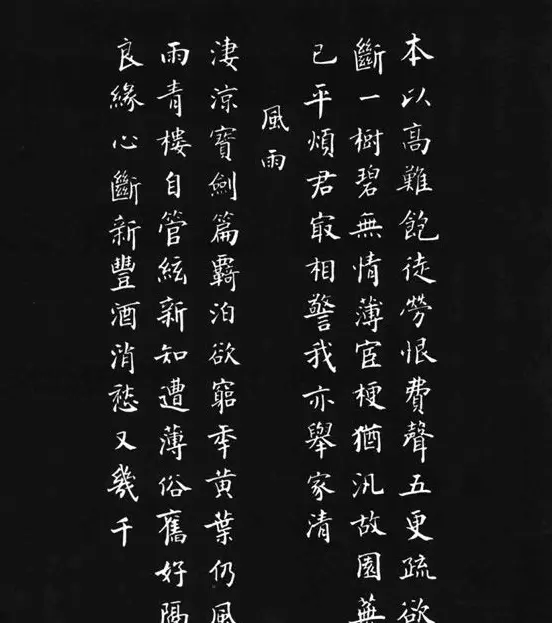 本以高難飽徒勞恨費聲五更疏欲
斷一樹碧無情薄宦梗猶汎故園蕪
已平煩君最相警我亦舉家清
風雨
淒涼寶劍篇羇泊欲窮年黃葉仍風
雨青樓自管絃新知遭薄俗舊好隔
良緣心斷新豐酒消愁又幾千